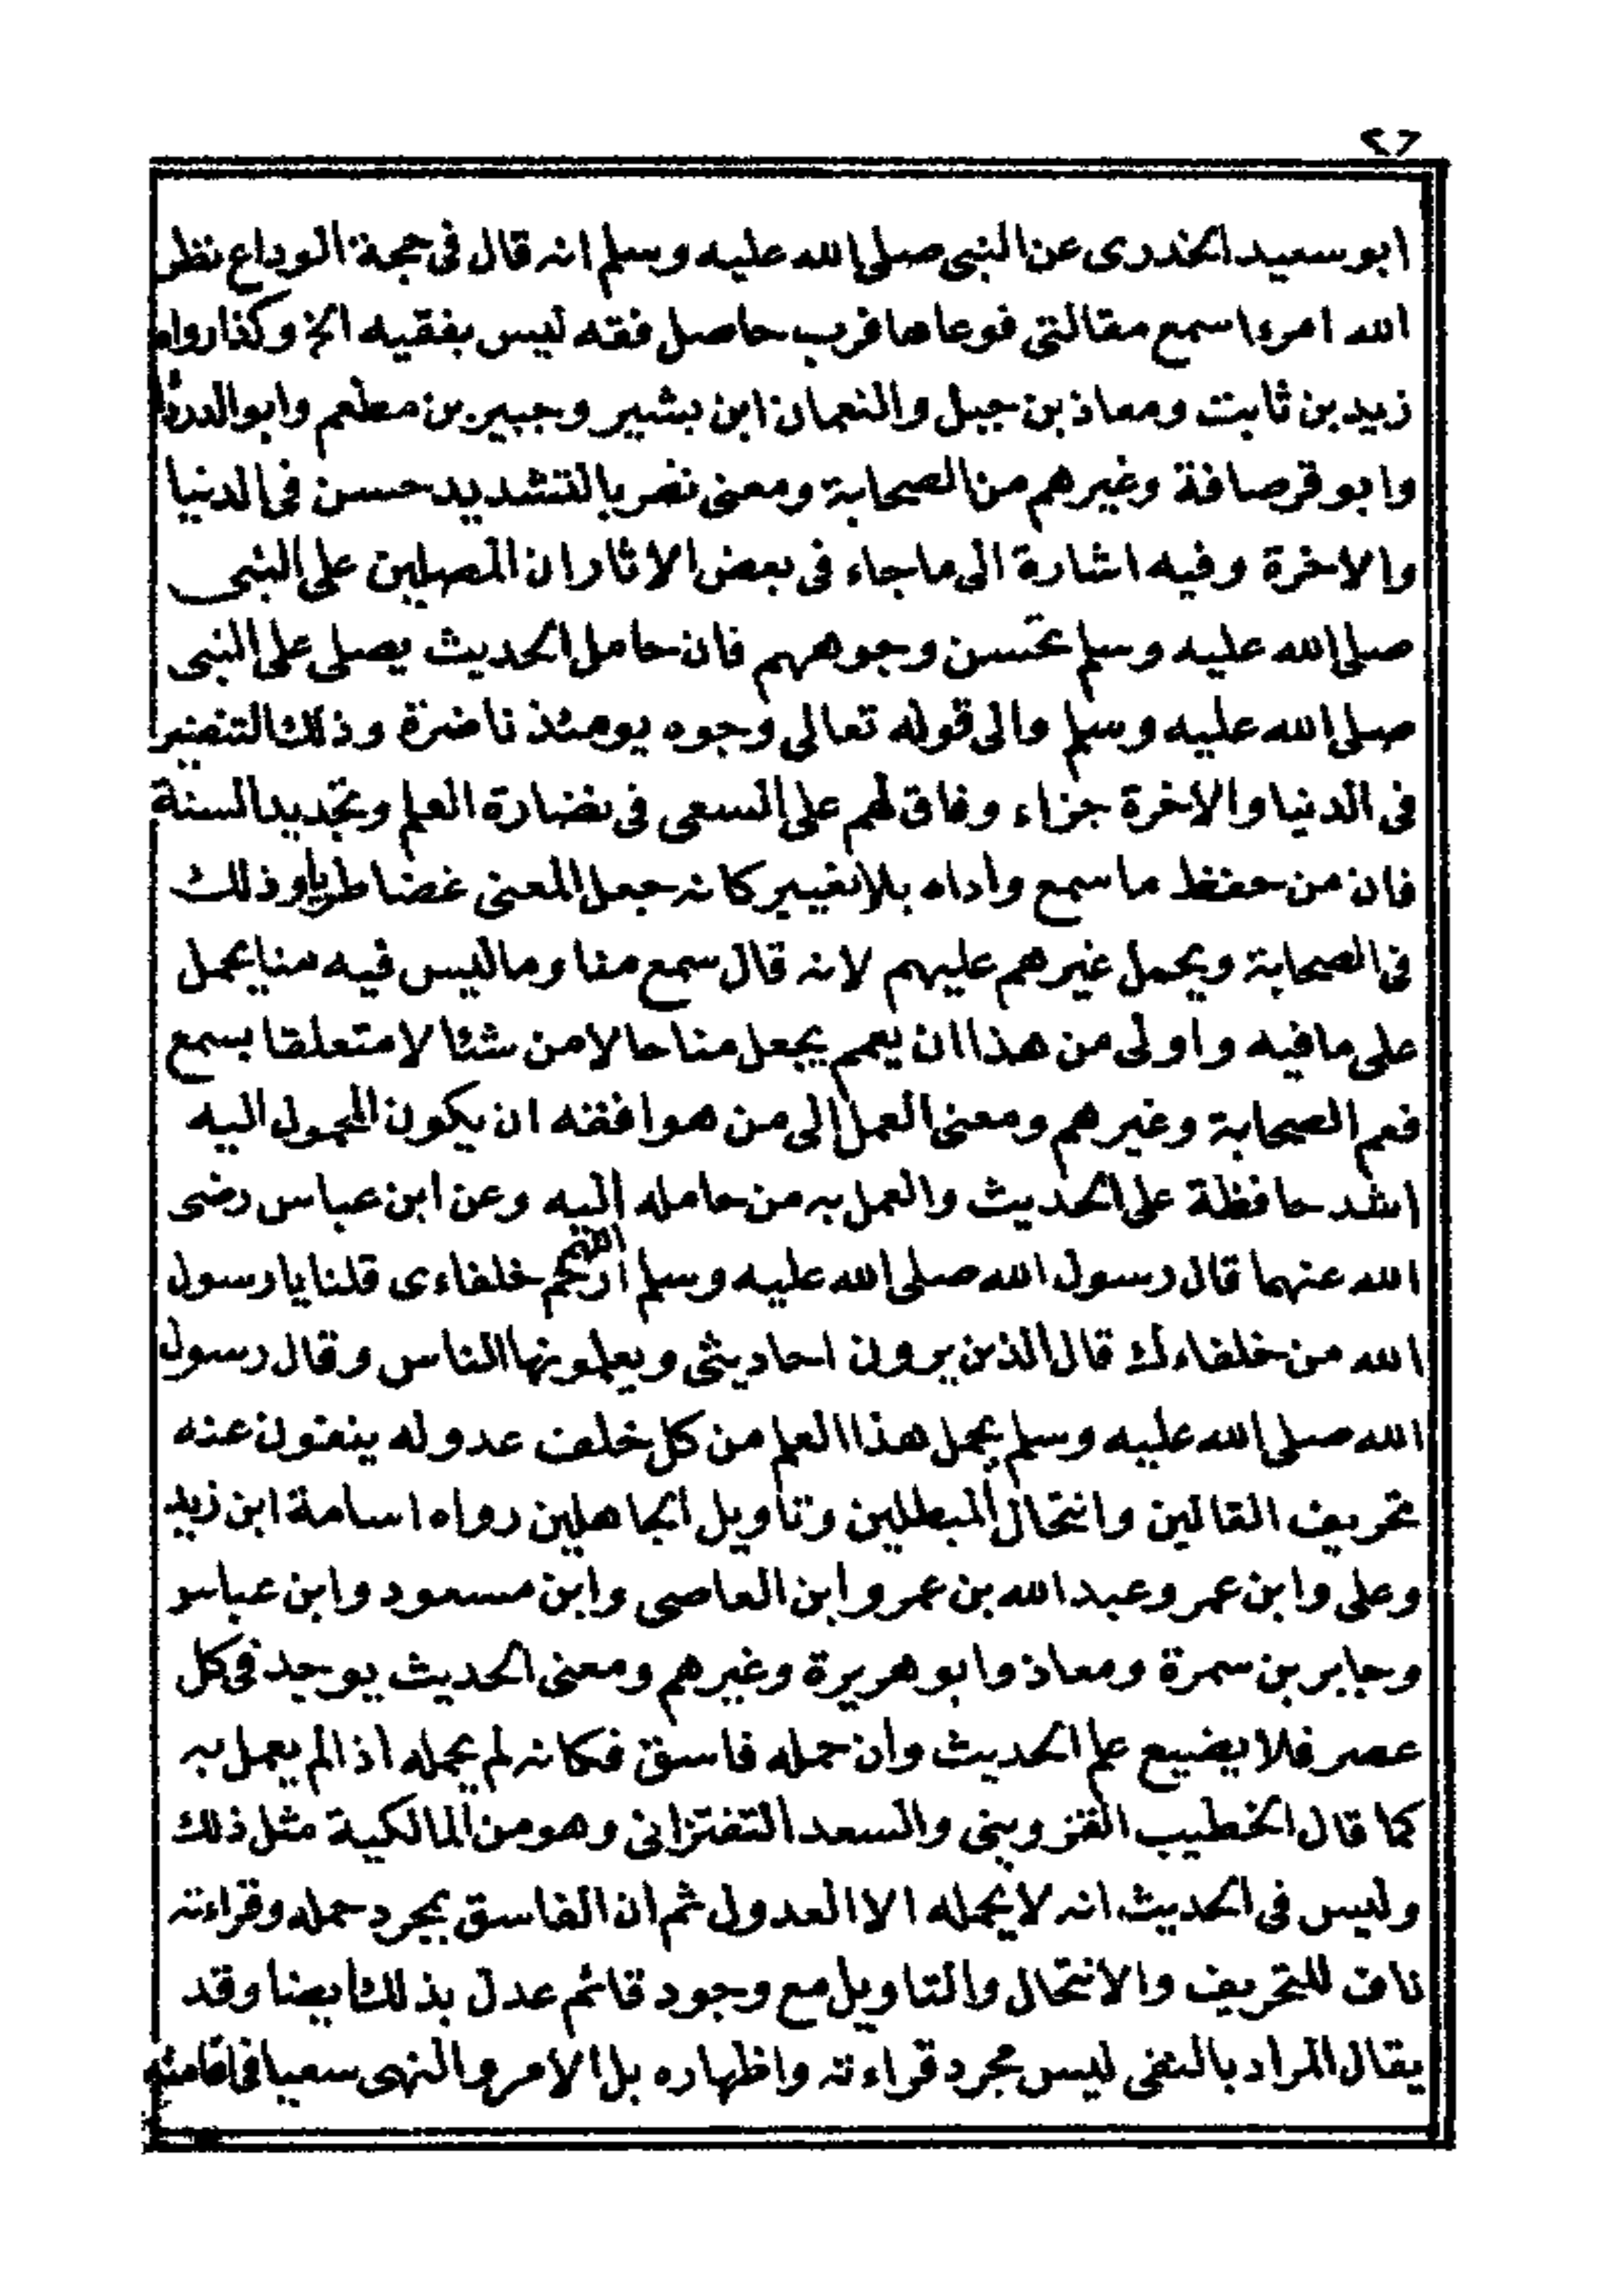 ٢٦
ابو سعيد الخدرى عن النبى صلى الله عليه وسلم انه قال فى حجة الوداع نظر
الله امرءا سمع مقالتى فوعاها فرب حاصل فقه ليس بفقيه الخ وكذا رواه
زيد بن ثابت ومعاذ بن جبل والنعمان ابن بشير وجبير بن مطعم وابو الدرداء
وابو قرصافة وغيرهم من الصحابة ومعنى نضر بالتشديد حسن فى الدنيا
والاخرة وفيه اشارة الى ما جاء فى بعض الاثار ان المصلين على النبى
صلى الله عليه وسلم تحسن وجوههم فان حامل الحديث يصلى على النبى
صلى الله عليه وسلم والى قوله تعالى وجوه يومئذ ناضرة وذلك التنضير
فى الدنيا والاخرة جزاء وفاق لهم على السعى فى نضارة العلم وتجديد السنة
فان من حفظ ما سمع واداه بلا تغيير كانه جعل المعنى غضا طريا وذلك
فى الصحابة ويحمل غيرهم عليهم لانه قال سمع منا وما ليس فيه منا يحمل
على ما فيه واولى من هذا ان يعمم بجعل منا حالا من شئا لا متعلقا بسمع
فعم الصحابة وغيرهم ومعنى العمل الى من هو افقه ان يكون المحمول اليه
اشد حافظة على الحديث والعمل به من حامله اليه وعن ابن عباس رضى
الله عنهما قال رسول الله صلى الله عليه وسلم اللهم ارحم خلفاءى قلنا يا رسول
الله من خلفاءك قال الذين يروون احاديثى ويعلمونها الناس وقال رسول
الله صلى الله عليه وسلم يحمل هذا العلم من كل خلف عدوله ينفون عنه
تحريف الغالين وانتحال المبطلين وتاويل الجاهلين رواه اسامة ابن زيد
وعلى وابن عمر وعبد الله بن عمرو ابن العاصى وابن مسعود وابن عباس
وجابر بن سمرة ومعاذ وابو هريرة وغيرهم ومعنى الحديث يوجد فى كل
عصر فلا يضيع علم الحديث وان حمله فاسق فكانه لم يحمله اذا لم يعمل به
كما قال الخطيب القزوينى والسعد التفتزانى وهو من المالكية مثل ذلك
وليس فى الحديث انه لا يحمله الا العدول ثم ان الفاسق بمجرد حمله وقراءته
ناف للتحريف والانتحال والتاويل مع وجود قائم عدل بذلك ايضا وقد
يقال المراد بالنفى ليس مجرد قراءته واظهاره بل الامر والنهى سعيا فى اقامته